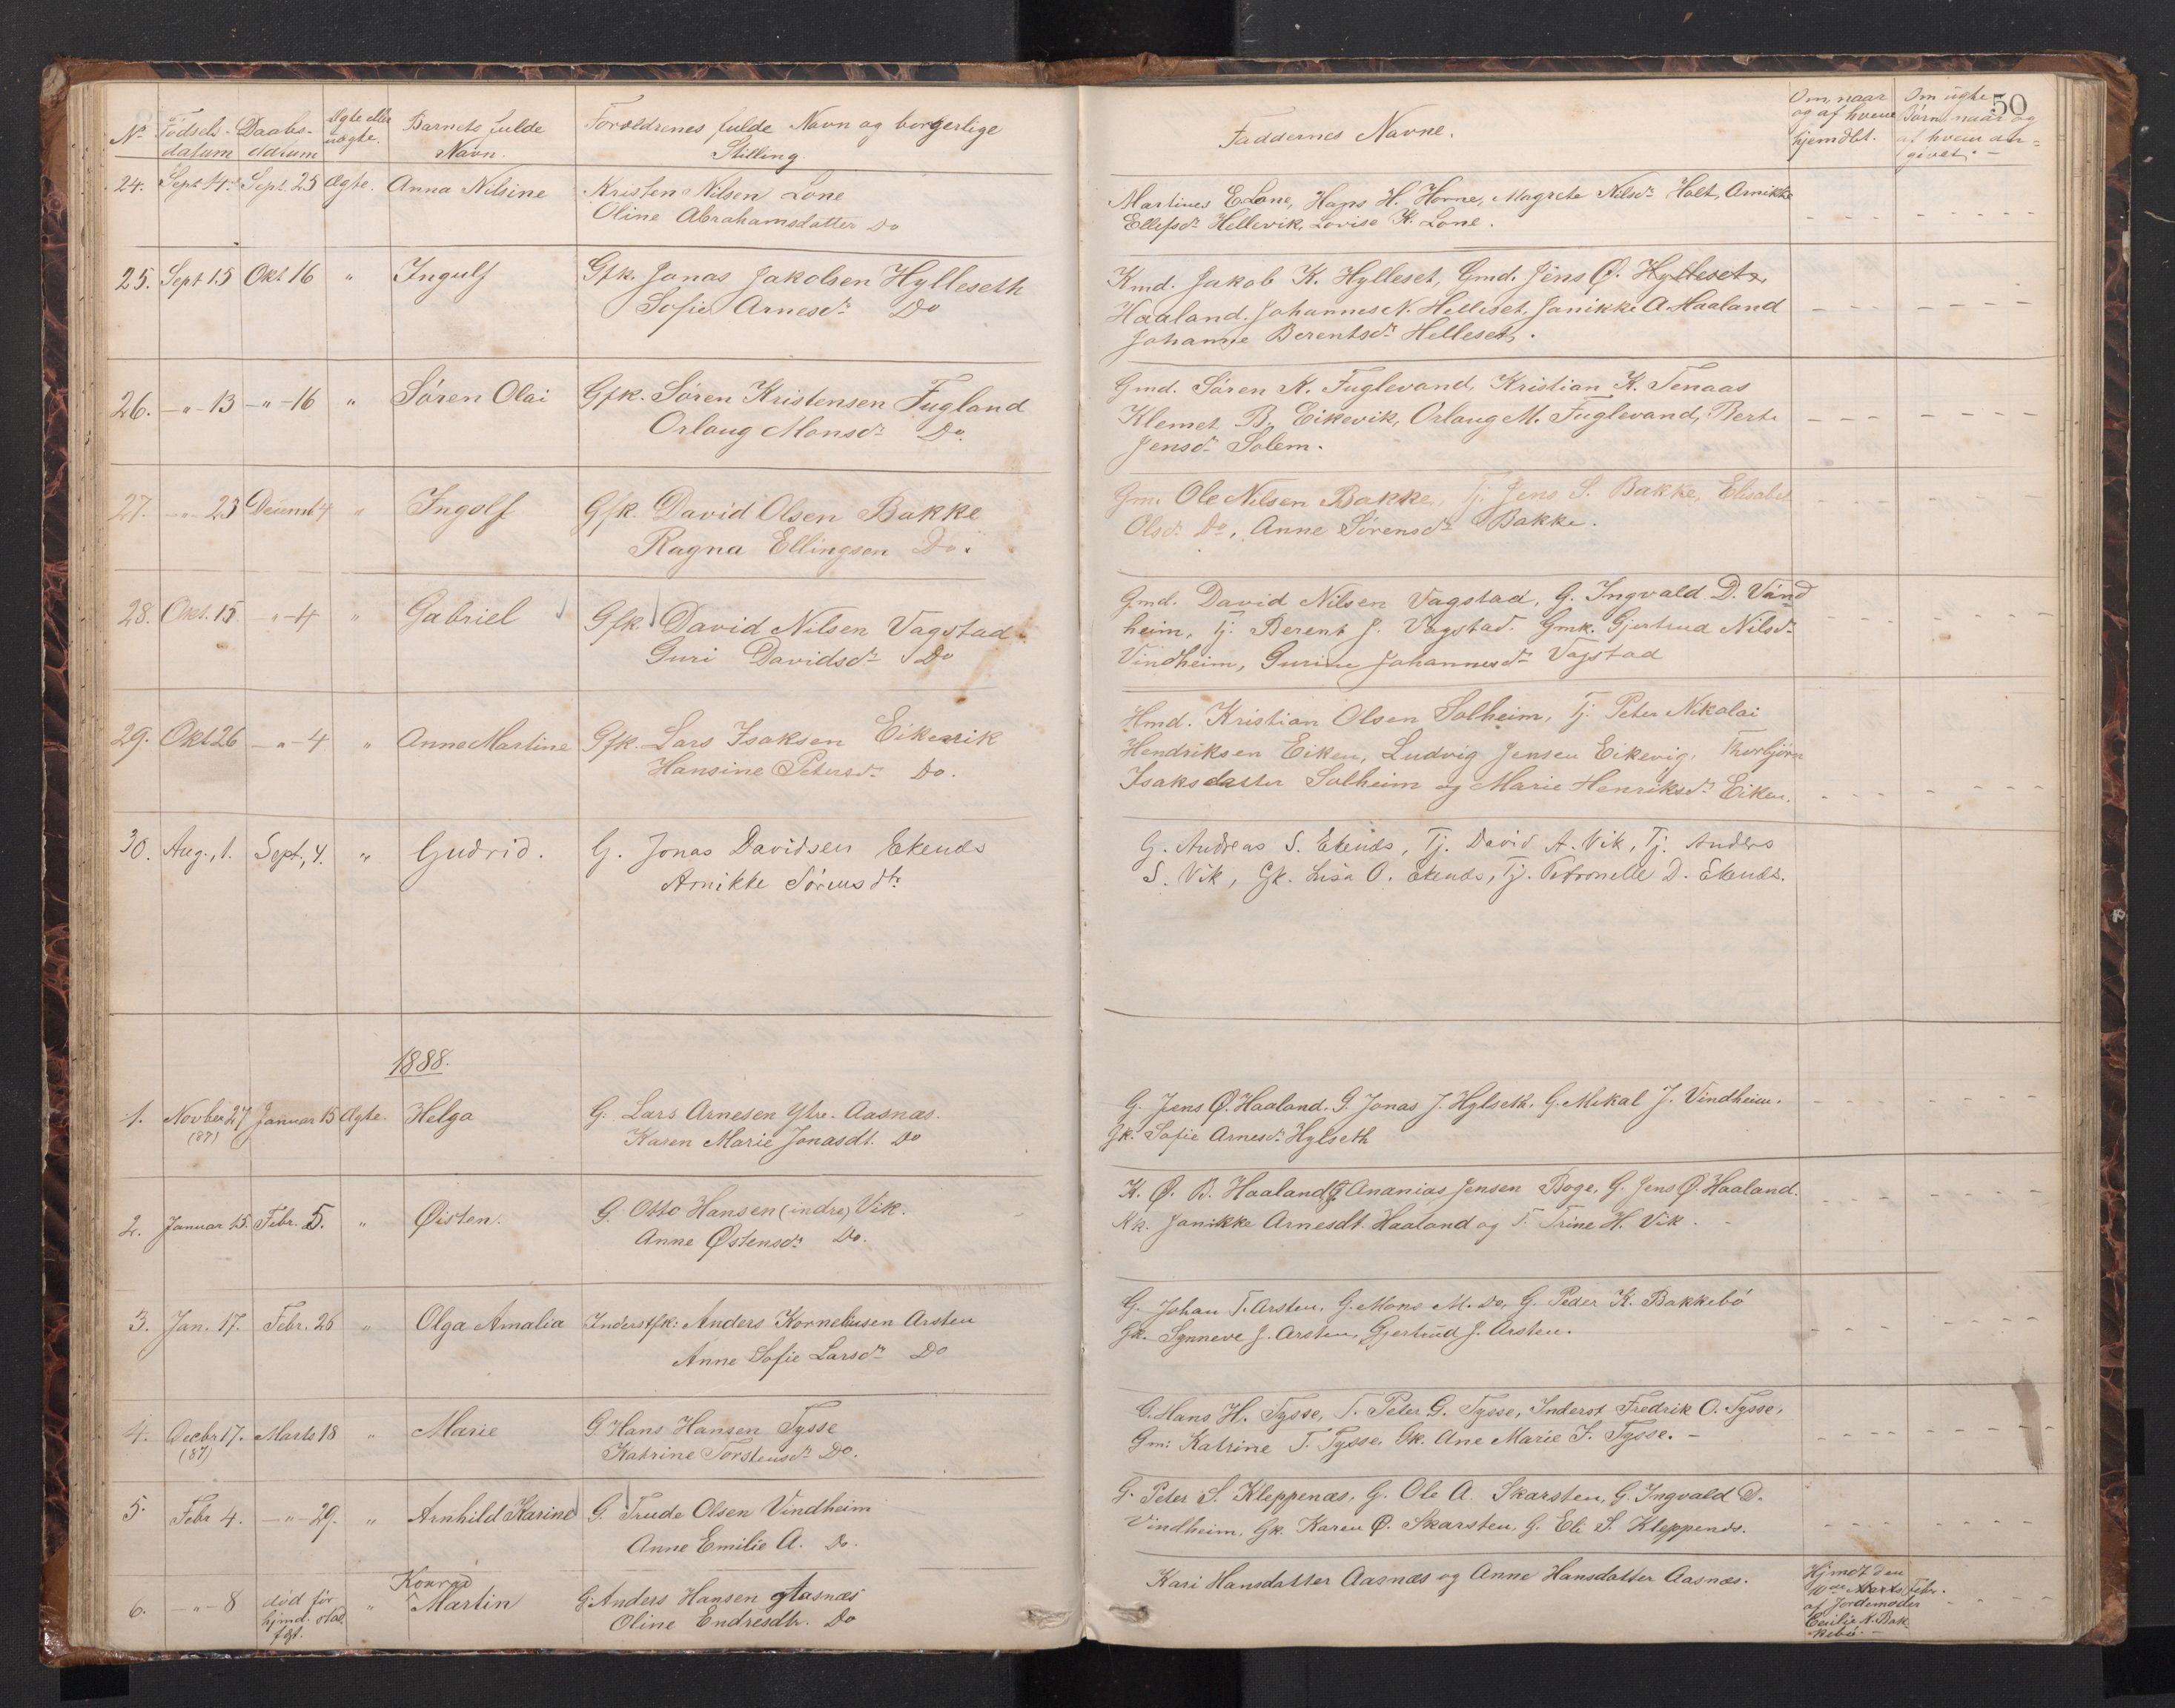 50
No Fødsels-datum Daabs-datum Ægte eller uægte. Barnets fulde Navn. Forældrenes fulde Navn og borgerlige Stilling. Faddernes Navne. Om, naar og af hvem hjemdbt. Om uægte Børn naar og af hvem angivet. -
24. Sept 4. Sept. 25 Ægte. Anna Nilsine Kristen Nilsen Lone Martines E Lone, Hans H. Horne, Magrete Nilsdr Holt, Arnikke
Oline Abrahamsdatter Do Ellefsdr Hellevik, Lovise K. Lone.
25. Sept 15 Okt 16 " Ingulf Gfk. Jonas Jakobsen Hylleseth Kmd. Jakob K. Hylleset, Gmd. Jens Ø. Hylleset
Sofie Arnesdr Do Haaland. Johannes N. Helleset, Janikke A. Haaland
Johanne Berentsdr Helleset.
26. -"- 13 -"- 16 " Søren Olai Gfk. Søren Kristensen Fugland Gmd. Søren N. Fuglevand, Kristian K. Tenaas
Orlaug Monsdr Do. Klemet B. Eikevik, Orlaug M. Fuglevand, Berte
Jensdr Solem.
27. -"- 23 Decemb 4 " Ingolf Gfk. David Olsen Bakke Gm. Ole Nilsen Bakke, Tj. Jens S. Bakke, Elisabet
Ragna Ellingsen Do. Olsdr Do, Anne Sørensdr Bakke.
28. Okt. 15. -"- 4 " Gabriel Gfk David Nilsen Vagstad Gmd. David Nilsen Vagstad, G. Ingvald D. Vind
Guri Davidsdr Do heim, Tj. Berent J. Vagstad. Gmk. Gjertrud Nilsdr
Vindheim, Gurine Johannesdr Vagstad
29. Okt 26 -"- 4 " Anne Martine Gfk. Lars Isaksen Eikevik Hmd. Kristian Olsen Solheim, Tj. Peter Nikolai
Hansine Petersdr Do. Hendriksen Eiken, Ludvig Jensen Eikevig, Thorbjørn
Isaksdatter Solheim og Marie Henriksdr Eiken.
30. Aug., 1. Sept., 4. " Gudrid. G. Jonas Davidsen Ekenæs G. Andreas S. Ekenæs, Tj. David A. Vik, Tj. Anders
Arnikke Sørensdtr. S. Vik, Gk. Lisa O. Ekenæs, Tj. Petronelle D. Ekenæs.
1888.
1. Novber 27 Januar 15 Ægte. Helga G. Lars Arnesen Ytre. Aasnæs. G. Jens Ø. Haaland. G. Jonas J. Hylseth. G. Mikal J. Vindheim.
(87) Karen Marie Jonasdt. Do Gk. Sofie Arnesdr Hylseth
2. Januar 15. Febr. 5. " Øisten. G. Otto Hansen (indre) Vik. K. Ø. B. Haaland G. Ananias Jensen Boge, G. Jens Ø. Haaland.
Anne Østensdr Do. Kk. Janikke Arnesdt. Haaland og T. Trine H. Vik.
3. Jan. 17. Febr. 26 " Olga Amalia Inderstfk: Anders Korneliusen Arsten G. Johan T. Arsten, G. Mons M. Do, G. Peder K. Bakkebø
Anne Sofie Larsdr Do Gk. Synneve J. Arsten, Gjertrud J. Arsten.
4. Decbr 17. Marts 18 " Marie G. Hans Hansen Tysse G. Hans H. Tysse, T. Peter G. Tysse, Inderst Fredrik O. Tysse,
(87) Katrine Torstensdr Do. Gm: Katrine T. Tysse, Gk. Ane Marie F. Tysse. -
5. Febr 4. -"- 29. " Arnhild Karine G. Trude Olsen Vindheim G. Peter S. Kleppenæs, G. Ole A. Skarsten, G. Ingvald D.
Anne Emilie A. Do. Vindheim, Gk. Karen Ø. Skarsten, G. Eli S. Kleppenæs.
6. -"- 8 død før hjmd. stad fæst. " Konrad Martin G: Anders Hansen Aasnæs Kari Hansdatter Aasnæs og Anne Hansdatter Aasnæs. Hjmdt den
Oline Endresdtr. Do 10de Febr.
af Jordemoder
Cecilie K. Bak
kebø. -